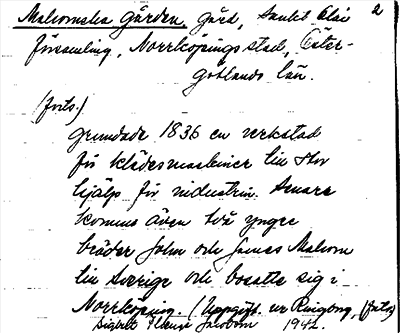 Malcomska gården, gård, Sankt Olai 2
församling, Norrköpings stad, Öster-
götlands län.
(forts.)
grundade 1836 en verkstad
för klädesmaskiner till stor
hjälp för industrin. Senare
kommo även två yngre
bröder John och James Malcom
till Sverige och bosatte sig i
Norrköping. (Uppgift. ur Ringborg, (forts.)
Sigrid 1942.